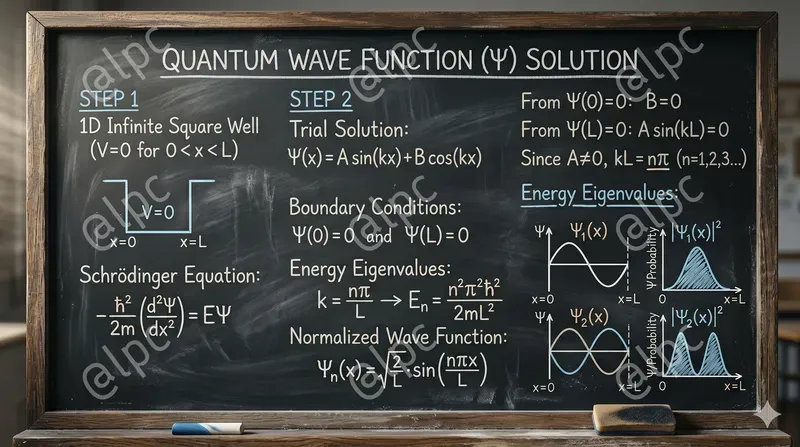 QUANTUM WAVE FUNCTION (Ψ) SOLUTION
STEP 1
1D Infinite Square Well
(V=0 for 0<x<L)
V=0
x=0 x=L
Schrödinger Equation:
-ħ²/2m (d²Ψ/dx²) = EΨ
STEP 2
Trial Solution:
Ψ(x)=A sin(kx)+B cos(kx)
Boundary Conditions:
Ψ(0)=0 and Ψ(L)=0
Energy Eigenvalues:
k = nπ/L → Eₙ = n²π²ħ²/2mL²
Normalized Wave Function:
Ψₙ(x)=√2/L·sin(nπx/L)
From Ψ(0)=0: B=0
From Ψ(L)=0: A sin(kL)=0
Since A≠0, kL=nπ (n=1,2,3...)
Energy Eigenvalues:
Ψ Ψ₁(x)
x=0 x=L
Ψ/Probability |Ψ₁(x)|²
0 x=L
Ψ Ψ₂(x)
x=0 x=L
Ψ/Probability |Ψ₂(x)|²
0 x=L
@lpc
@lpc
@lpc
@lpc
@lpc
@lpc
@lpc
@lpc
@lpc